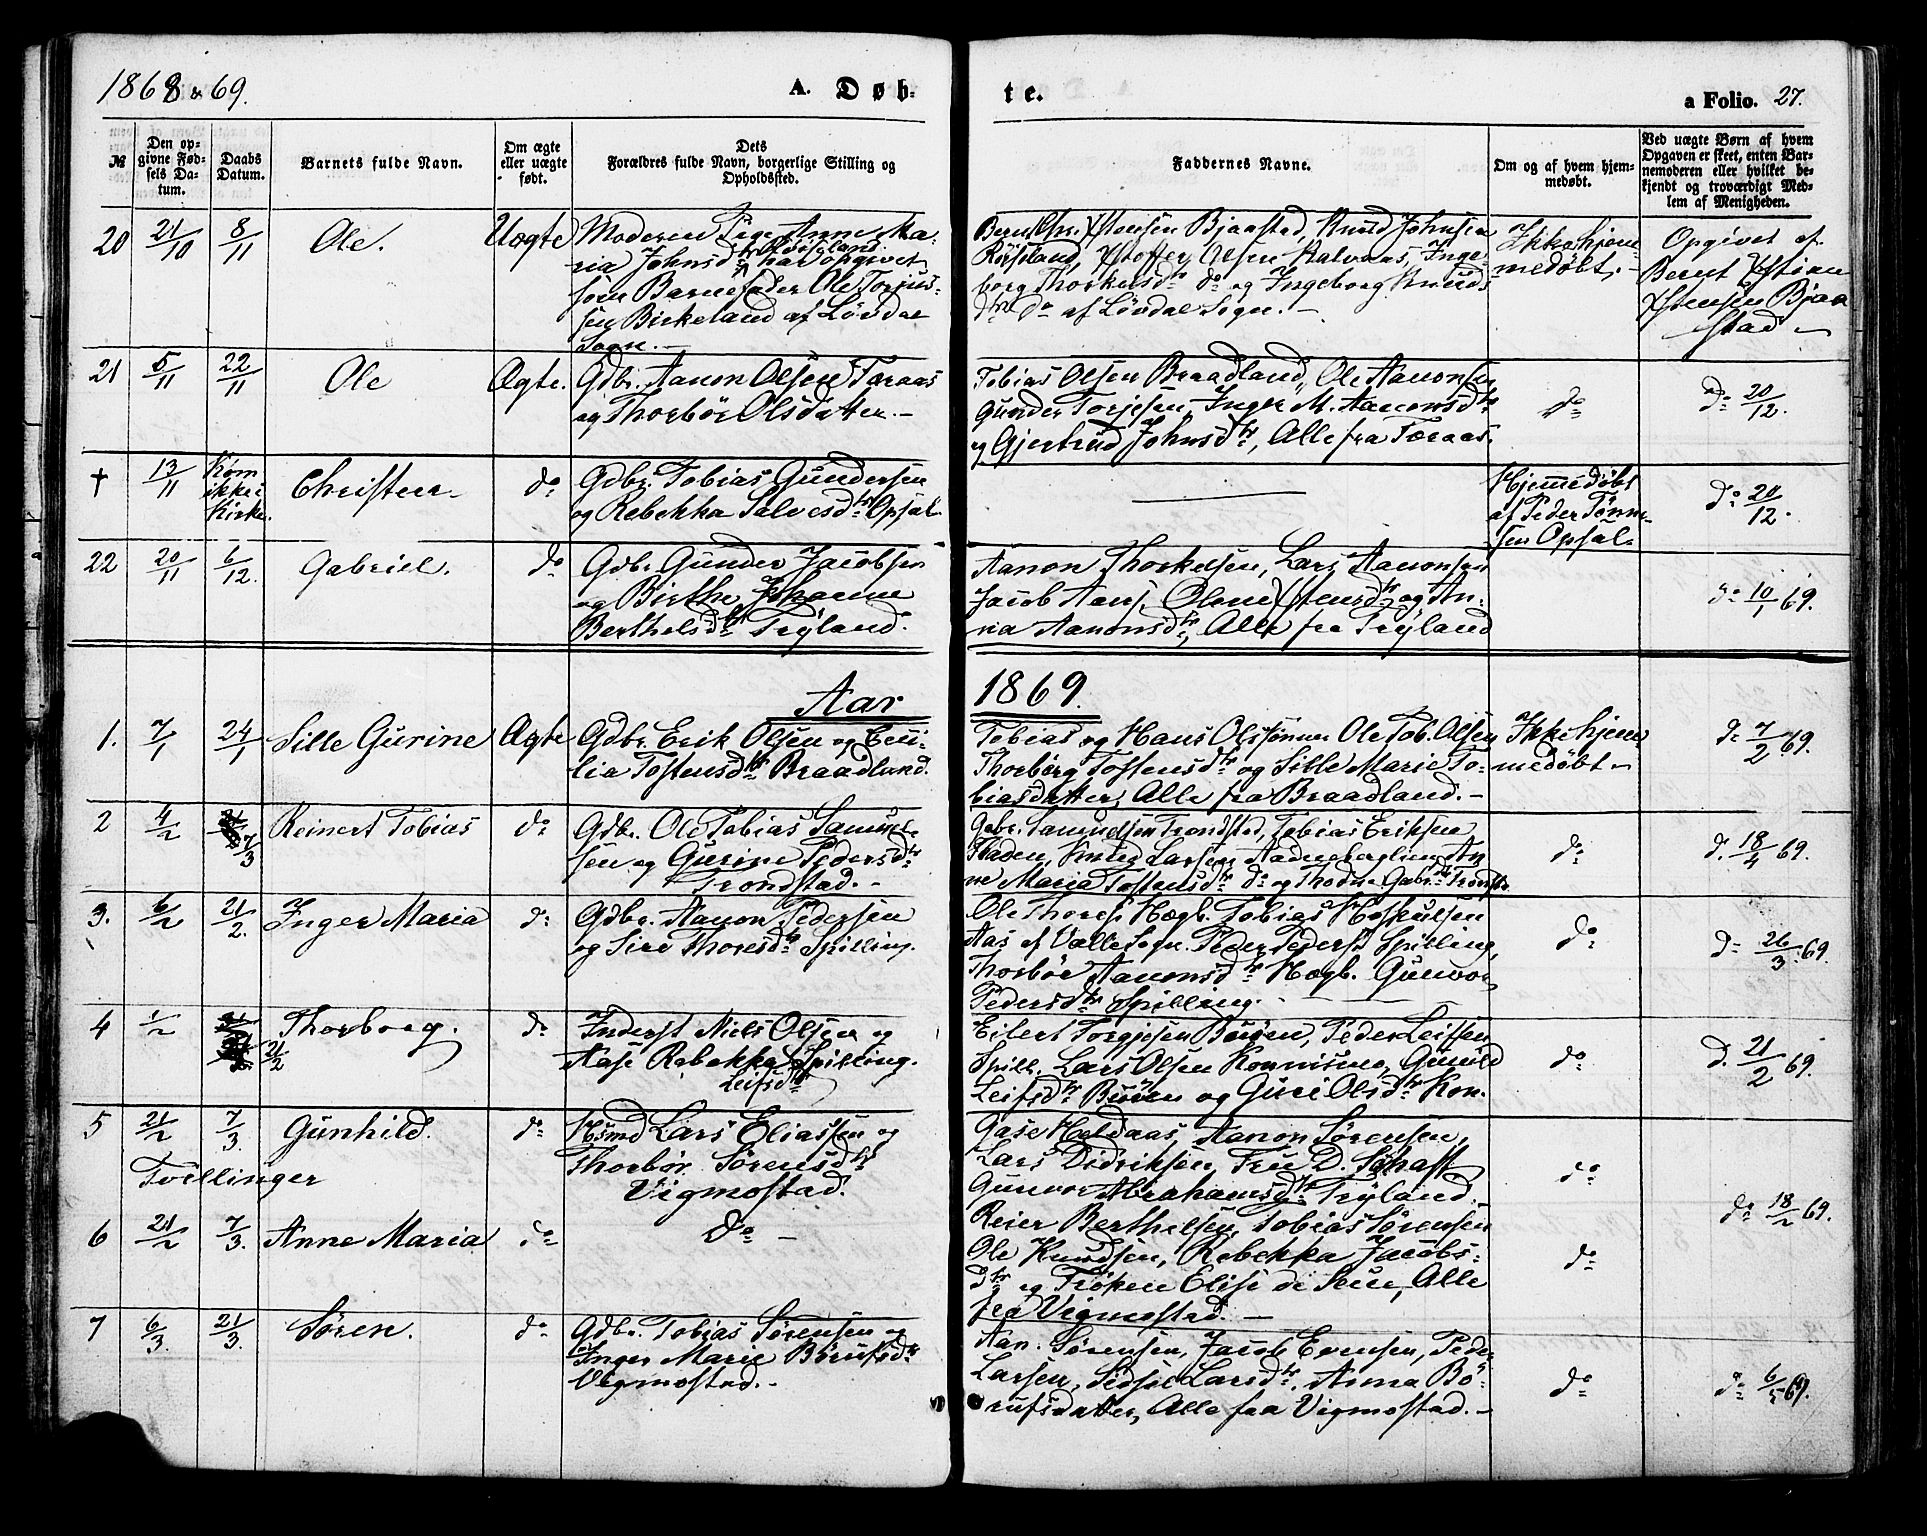 1868 & 69.
A. Døb-
te.
a Folio. 27.
№
Den op-
givne Fød-
sels Da-
tum.
Daabs
Datum.
Barnets fulde Navn.
Om ægte
eller uægte
født.
Dets
Forældres fulde Navn, borgerlige Stilling og
Opholdssted.
Faddernes Navne.
Om og af hvem hjem-
medøbt.
Ved uægte Børn af hvem
Opgaven er skeet, enten Bar-
nemoderen eller hvilket be-
kjendt og troværdigt Med-
lem af Menigheden.
20 21/10 8/11 Ole. Uægte
Moderen Pige Anne Ma-
ria Johnsdtr har opgivet
som Barnefader Ole Torjus-
sen Birkeland af Løvdal
Sogn.-
Bjaastad, Knud Johnsen
Olsen Halvaas, Inge-
borg Thorkelsdtr do og Ingeborg Knuds
dtr do af Løvdal Sogn.-
Ikke hjem
medøbt.-
Opgivet af
Bernt Xstian
Xstensen Bjaa
stad -
21 5/11 22/11 Ole Ægte.
Gdbr. Aanon Olsen Taraas
og Thorbør Olsdatter.-
Tobias Olsen Braadland, Ole Aanonsen
Gunder Torjesen, Inger M. Aanonsdtr
og Gjertrud Johnsdtr, Alle fra Taraas.
do
do 20/12.
† 13/11 Kom
ikke i
Kirke.
Christen do
Gdbr. Tobias Gundersen
og Rebekka Salvesdtr Opsal
Hjemmedøbt
af Peder Tønne-
sen Opsal-
do 20/12.
22 20/11 6/12. Gabriel. do
Gdbr Gunder Jacobsen
og Birthe Johanne
Berthelsdtr Trÿland.
Aanon Thorkelsen, Lars Aanonsen
Jacob Aans, Olene Xstensdtr og An-
na Aanonsdtr, Alle fra Trÿland
do 10/1 69.
Aar
1869.
1. 7/1 24/1 Sille Gurine Ægte
Gdbr Erik Olsen og Emi-
lia Tostensdtr Braadland.
Tobias og Hans Olssønner Ole Tob. Olsen
Thorborg Tostensdtr og Sille Marie To-
biasdatter, Alle fra Braadland.-
Ikke hjem
medøbt-
do 7/2 69.
2 4/2 7/3 Reinert Tobias do
Gdbr. Ole Tobias Samuel-
sen og Gurine Pedersdtr
Trondstad.-
Gabr. Samuelsen Trondstad, Tobias Eriksen
Larsen An
ne Maria Tostensdtr do og
do
d. 18/4 69.
3. 6/2 21/2. Inger Maria do
Gdbr. Aanon Pedersen
og Siri Thoresdtr Spilling.
Ole Thores. Hægb. Tobias
Aas af Valle Sogn. Peder Peders. Spilling,
Thorbør Aanonsdtr Hægb. Gunvor
Pedersdtr Spilling.
do
do 26/3 69.
4 1/2 21/2 Thorborg. do
Inderst Niels Olsen og
Aase Rebekka Spilling.
Leifsdtr
Eilert Torgjesen Buøen, Peder Leifsen
Spill. Lars Olsen Konnismo, Gunild
Leifsdtr Buøen og Guri Olsdtr Kon.
do
d. 21/2 69.
5 21/2 7/3 Gunhild. do
Hsmd Lars Eliassen og
Thorbør Sørensdtr
Vigmostad.
Tvillinger
Aanon Sørensen,
Lars Didriksen, Fru D. Schaft
Gunvor Abrahamsdtr Trÿland.
do
6 21/2 7/3. Anne Maria do
Do -
Reier Berthelsen, Tobias Sørensen
Ole Knudsen, Rebekka Jacobs-
dtr og Frøken Elise de Seue, Alle
fra Vigmostad.-
do
do 18/2 69.
7 6/3. 21/3. Søren. do
Gdbr. Tobias Sørensen og
Inger Marie Børufsdtr
Vigmostad.-
Aan. Sørensen, Jacob Evensen, Peder
Larsen, Sidsel Larsdtr, Anna Bö-
rufsdatter, Alle fra Vigmostad.-
do
do 6/5 69.